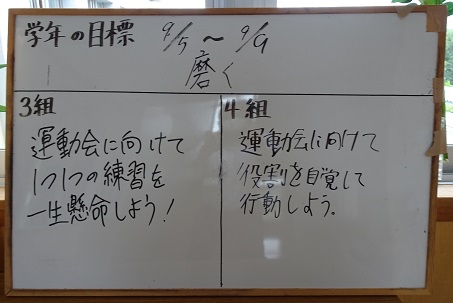 学年の目標 9/5 〜 9/9
磨く
3組
運動会に向けて
1つ1つの練習を
一生懸命しよう!
4組
運動会に向けて
役割を自覚して
行動しよう。